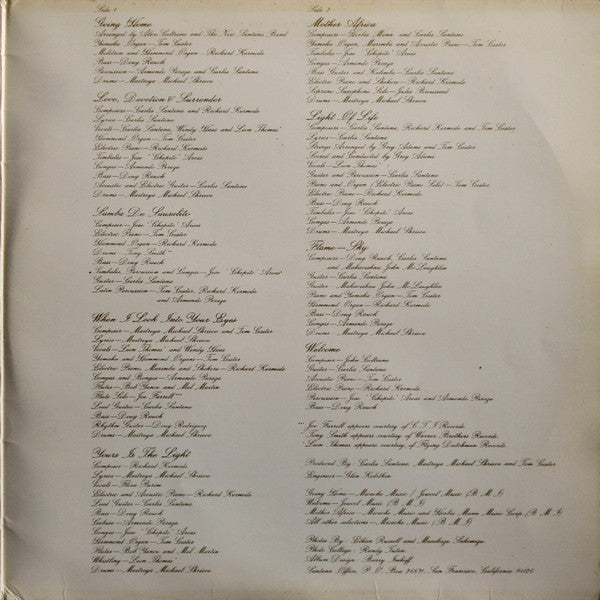 Side 1
Going Home
Arranged by Alice Coltrane and The New Santana Band
Yamaha Organ—Tom Coster
Melotron and Hammond Organ—Richard Kermode
Bass—Doug Rauch
Percussion—Armando Peraza and Carlos Santana
Drums—Maitreya Michael Shrieve
Love, Devotion & Surrender
Composers—Carlos Santana and Richard Kermode
Lyrics—Carlos Santana
Vocals—Carlos Santana, Wendy Haas and Leon Thomas
Hammond Organ—Tom Coster
Electric Piano—Richard Kermode
Timbales—Jose 'Chepito' Areas
Congas—Armando Peraza
Bass—Doug Rauch
Acoustic and Electric Guitar—Carlos Santana
Drums—Maitreya Michael Shrieve
Samba De Sausalito
Composer—Jose 'Chepito' Areas
Electric Piano—Tom Coster
Hammond Organ—Richard Kermode
Drums—Tony Smith
Bass—Doug Rauch
Timbales, Percussion and Congas—Jose 'Chepito' Areas
Guitar—Carlos Santana
Latin Percussion—Tom Coster, Richard Kermode
and Armando Peraza
When I Look Into Your Eyes
Composer—Maitreya Michael Shrieve and Tom Coster
Lyrics—Maitreya Michael Shrieve
Vocals—Leon Thomas and Wendy Haas
Yamaha and Hammond Organs—Tom Coster
Electric Piano, Marimba and Shekere—Richard Kermode
Congas and Bongos—Armando Peraza
Flutes—Bob Yance and Mel Martin
Flute Solo—Joe Farrell
Lead Guitar—Carlos Santana
Bass—Doug Rauch
Rhythm Guitar—Doug Rodriguez
Drums—Maitreya Michael Shrieve
Yours Is The Light
Composer—Richard Kermode
Lyrics—Maitreya Michael Shrieve
Vocals—Flora Purim
Electric and Acoustic Piano—Richard Kermode
Lead Guitar—Carlos Santana
Bass—Doug Rauch
Cabasa—Armando Peraza
Congas—Jose 'Chepito' Areas
Hammond Organ—Tom Coster
Flutes—Bob Yance and Mel Martin
Whistling—Leon Thomas
Drums—Maitreya Michael Shrieve
Side 2
Mother Africa
Composers—Herbie Mann and Carlos Santana
Yamaha Organ, Marimba and Acoustic Piano—Tom Coster
Timbales—Jose 'Chepito' Areas
Congas—Armando Peraza
Bass Guitar and Kalimba—Carlos Santana
Electric Piano and Shekere—Richard Kermode
Soprano Saxophone Solo—Jules Broussard
Drums—Maitreya Michael Shrieve
Light Of Life
Composers—Carlos Santana, Richard Kermode and Tom Coster
Lyrics—Carlos Santana
Strings Arranged by Greg Adams and Tom Coster
Scored and Conducted by Greg Adams
Vocals—Leon Thomas
Guitar and Percussion—Carlos Santana
Piano and Organ (Electric Piano Solo)—Tom Coster
Electric Piano—Richard Kermode
Bass—Doug Rauch
Timbales—Jose 'Chepito' Areas
Congas—Armando Peraza
Drums—Maitreya Michael Shrieve
Flame—Sky
Composers—Doug Rauch, Carlos Santana
and Mahavishnu John McLaughlin
Guitar—Carlos Santana
Guitar—Mahavishnu John McLaughlin
Piano and Yamaha Organ—Tom Coster
Hammond Organ—Richard Kermode
Bass—Doug Rauch
Congas—Armando Peraza
Drums—Maitreya Michael Shrieve
Welcome
Composer—John Coltrane
Guitar—Carlos Santana
Acoustic Piano—Tom Coster
Electric Piano—Richard Kermode
Percussion—Jose 'Chepito' Areas and Armando Peraza
Bass—Doug Rauch
Joe Farrell appears courtesy of C.T.I. Records.
Tony Smith appears courtesy of Warner Brothers Records.
Leon Thomas appears courtesy of Flying Dutchman Records.
Produced By: Carlos Santana, Maitreya Michael Shrieve and Tom Coster
Engineer—Glen Kolotkin
Going Home—Jowcol Music (B.M.I)
Welcome—Jowcol Music (B.M.I)
All other selections—Music (B.M.I)
Photo By:
Photo Collage:
Album Design: Barry Imhoff
Santana Office, P.O. Box San Francisco, California 94126